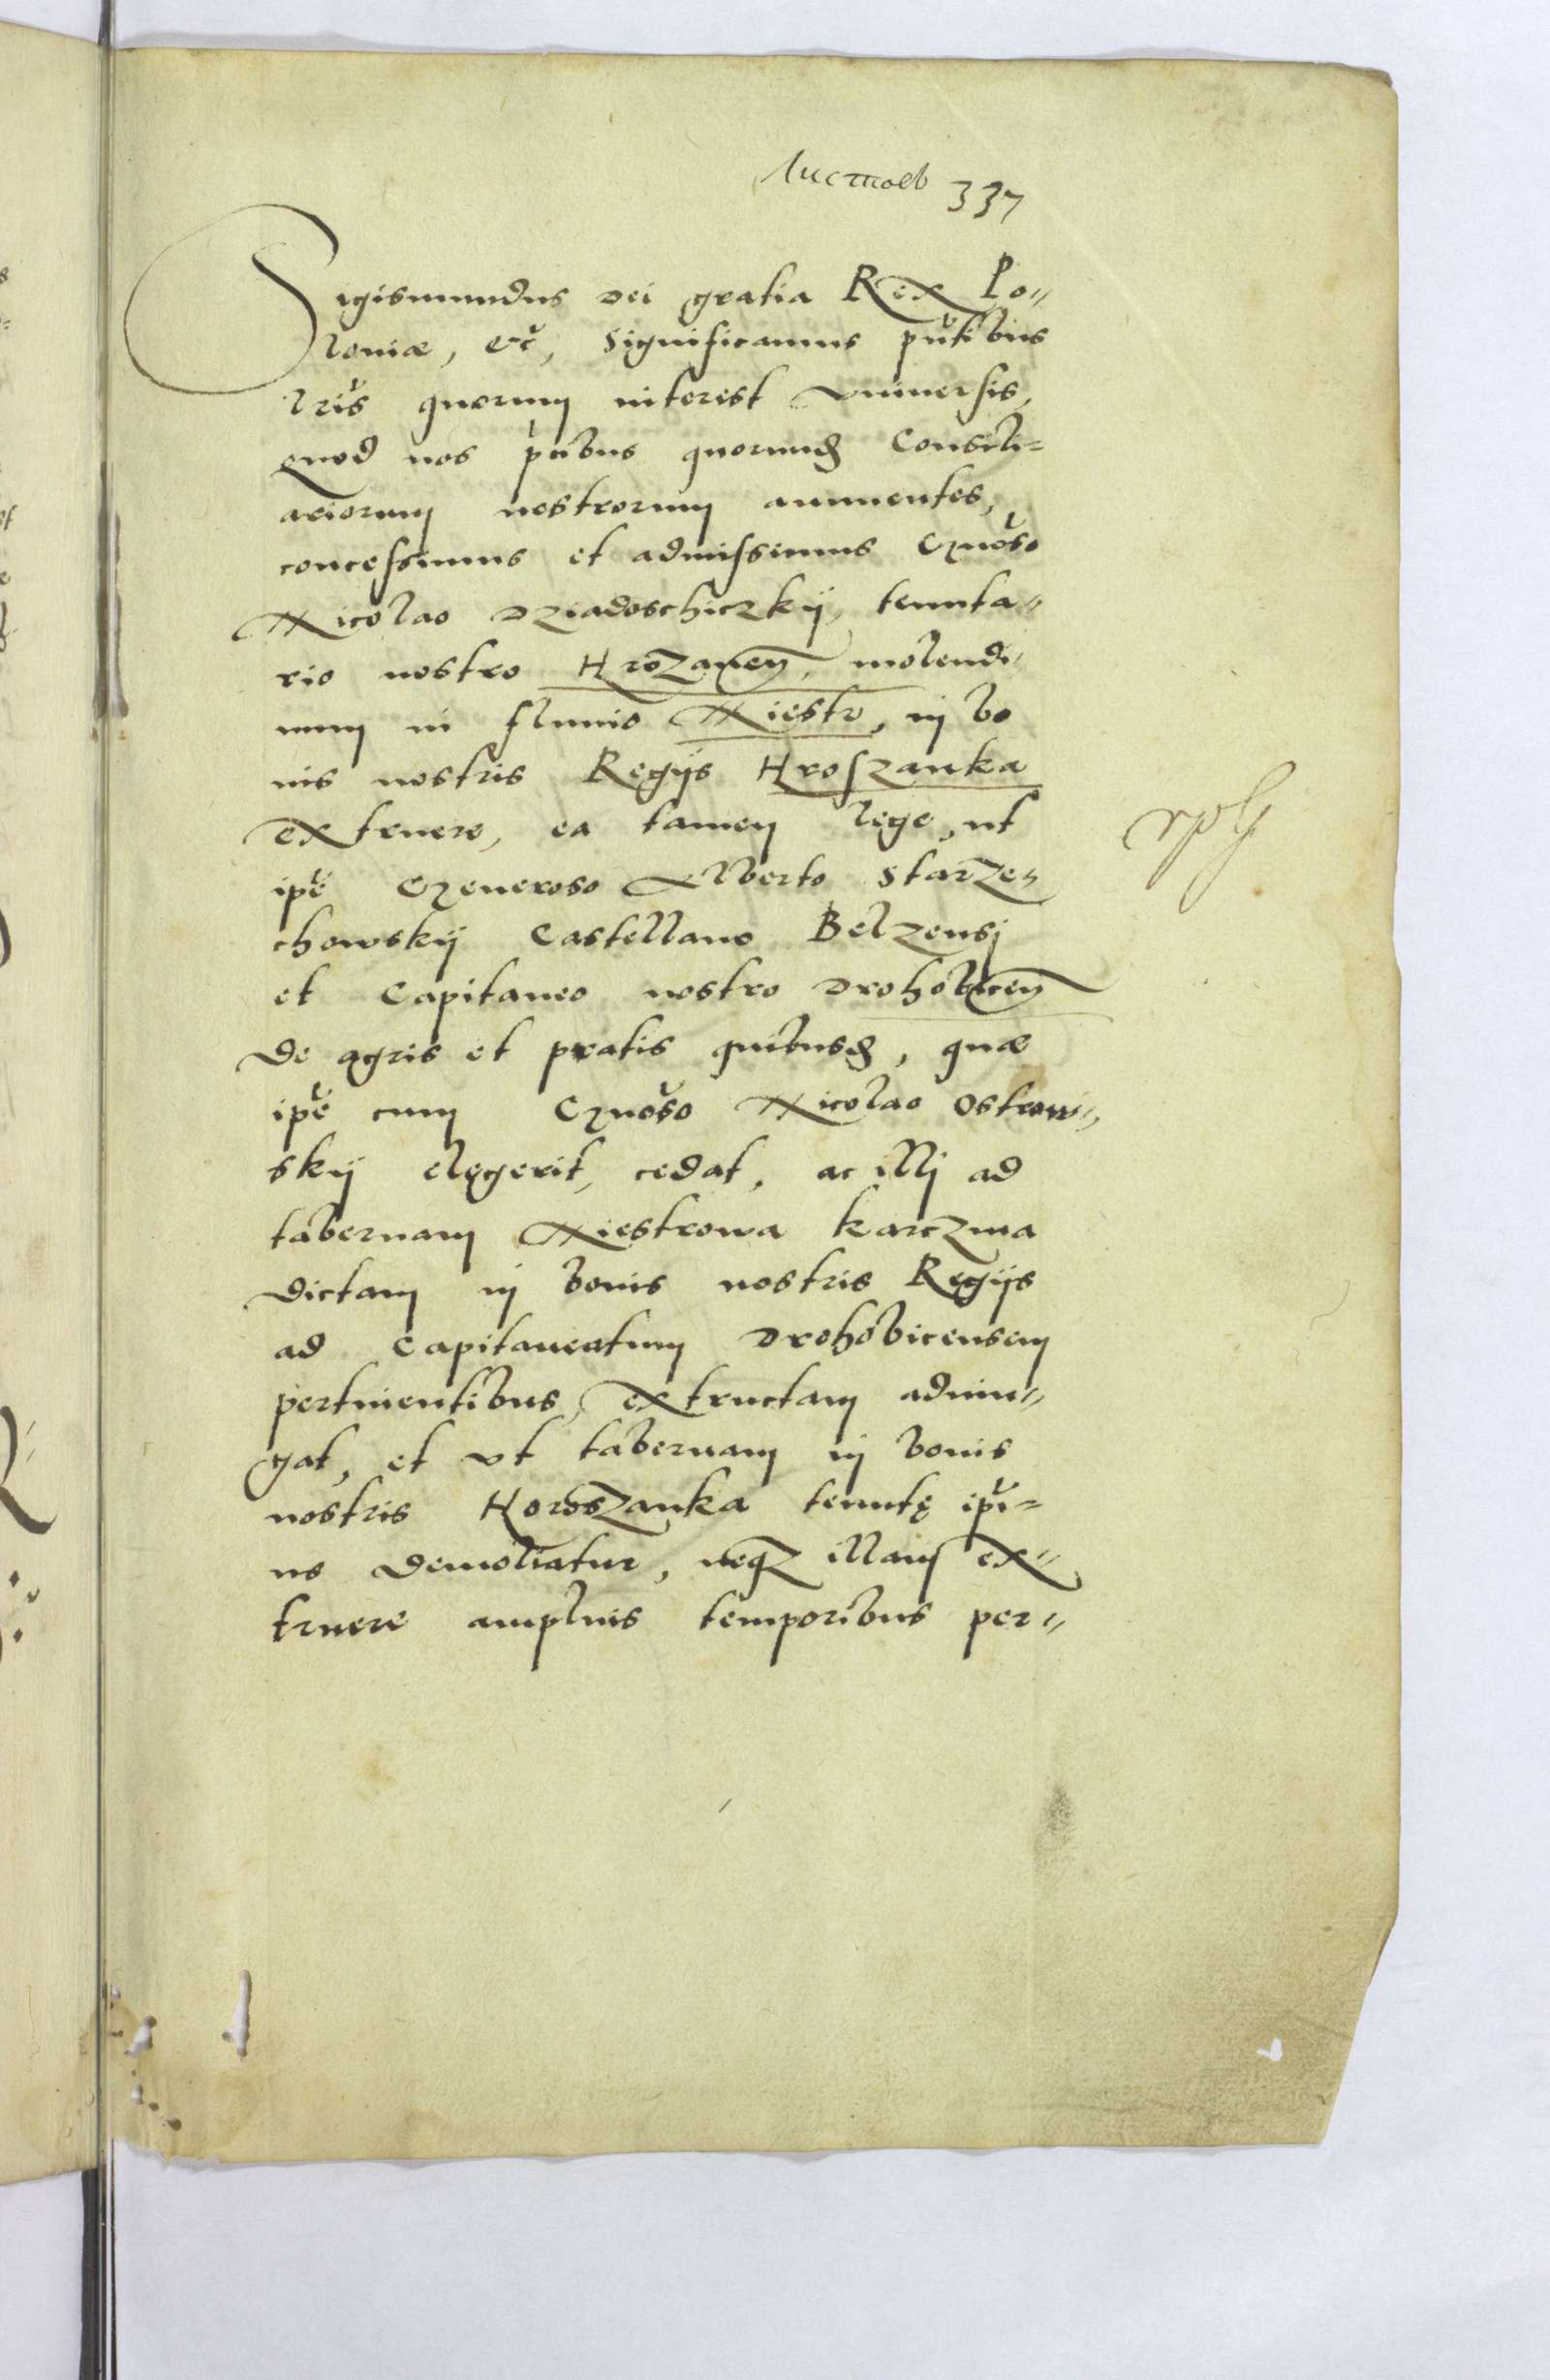 Листовъ 337
Sigismundus Dei gratia Rex Po„
loniæ, etc, Significamus pn̄tibus
lr̄is quorum interest vniuersis,
quod nos p̄cibus quorund Consili=
ariorum nestrorum annuentes,
concessimus et admissimus Gnōso
Nicolao Dziadoschiczkij, tenuta„
rio nostro Hrozanen, molendi„
num in fluuio Niestr, in bo
nis nostris Regijs Hroszanka
extruere, ea tamen lege, ut
ip̄e Generoso Alberto Starze„
chowskij Castellano Belzensi
et Capitaneo nostro Drohobicen
de agris et pratis quibusd, quæ
ip̄e cum Gnōso Nicolao Ostrow„
skij elegerit, cedat, ac illi ad
tabernam Niestrowa Karczma
dictam in bonis nostris Regijs
ad Capitaneatum Drohobicensem
pertinentibus, extructam adiun„
gat, et vt tabernam in bonis
nostris Horoszanka tenutę ip̄i=
us demoliatur, neqz illam ex„
truere amplius temporibus per„